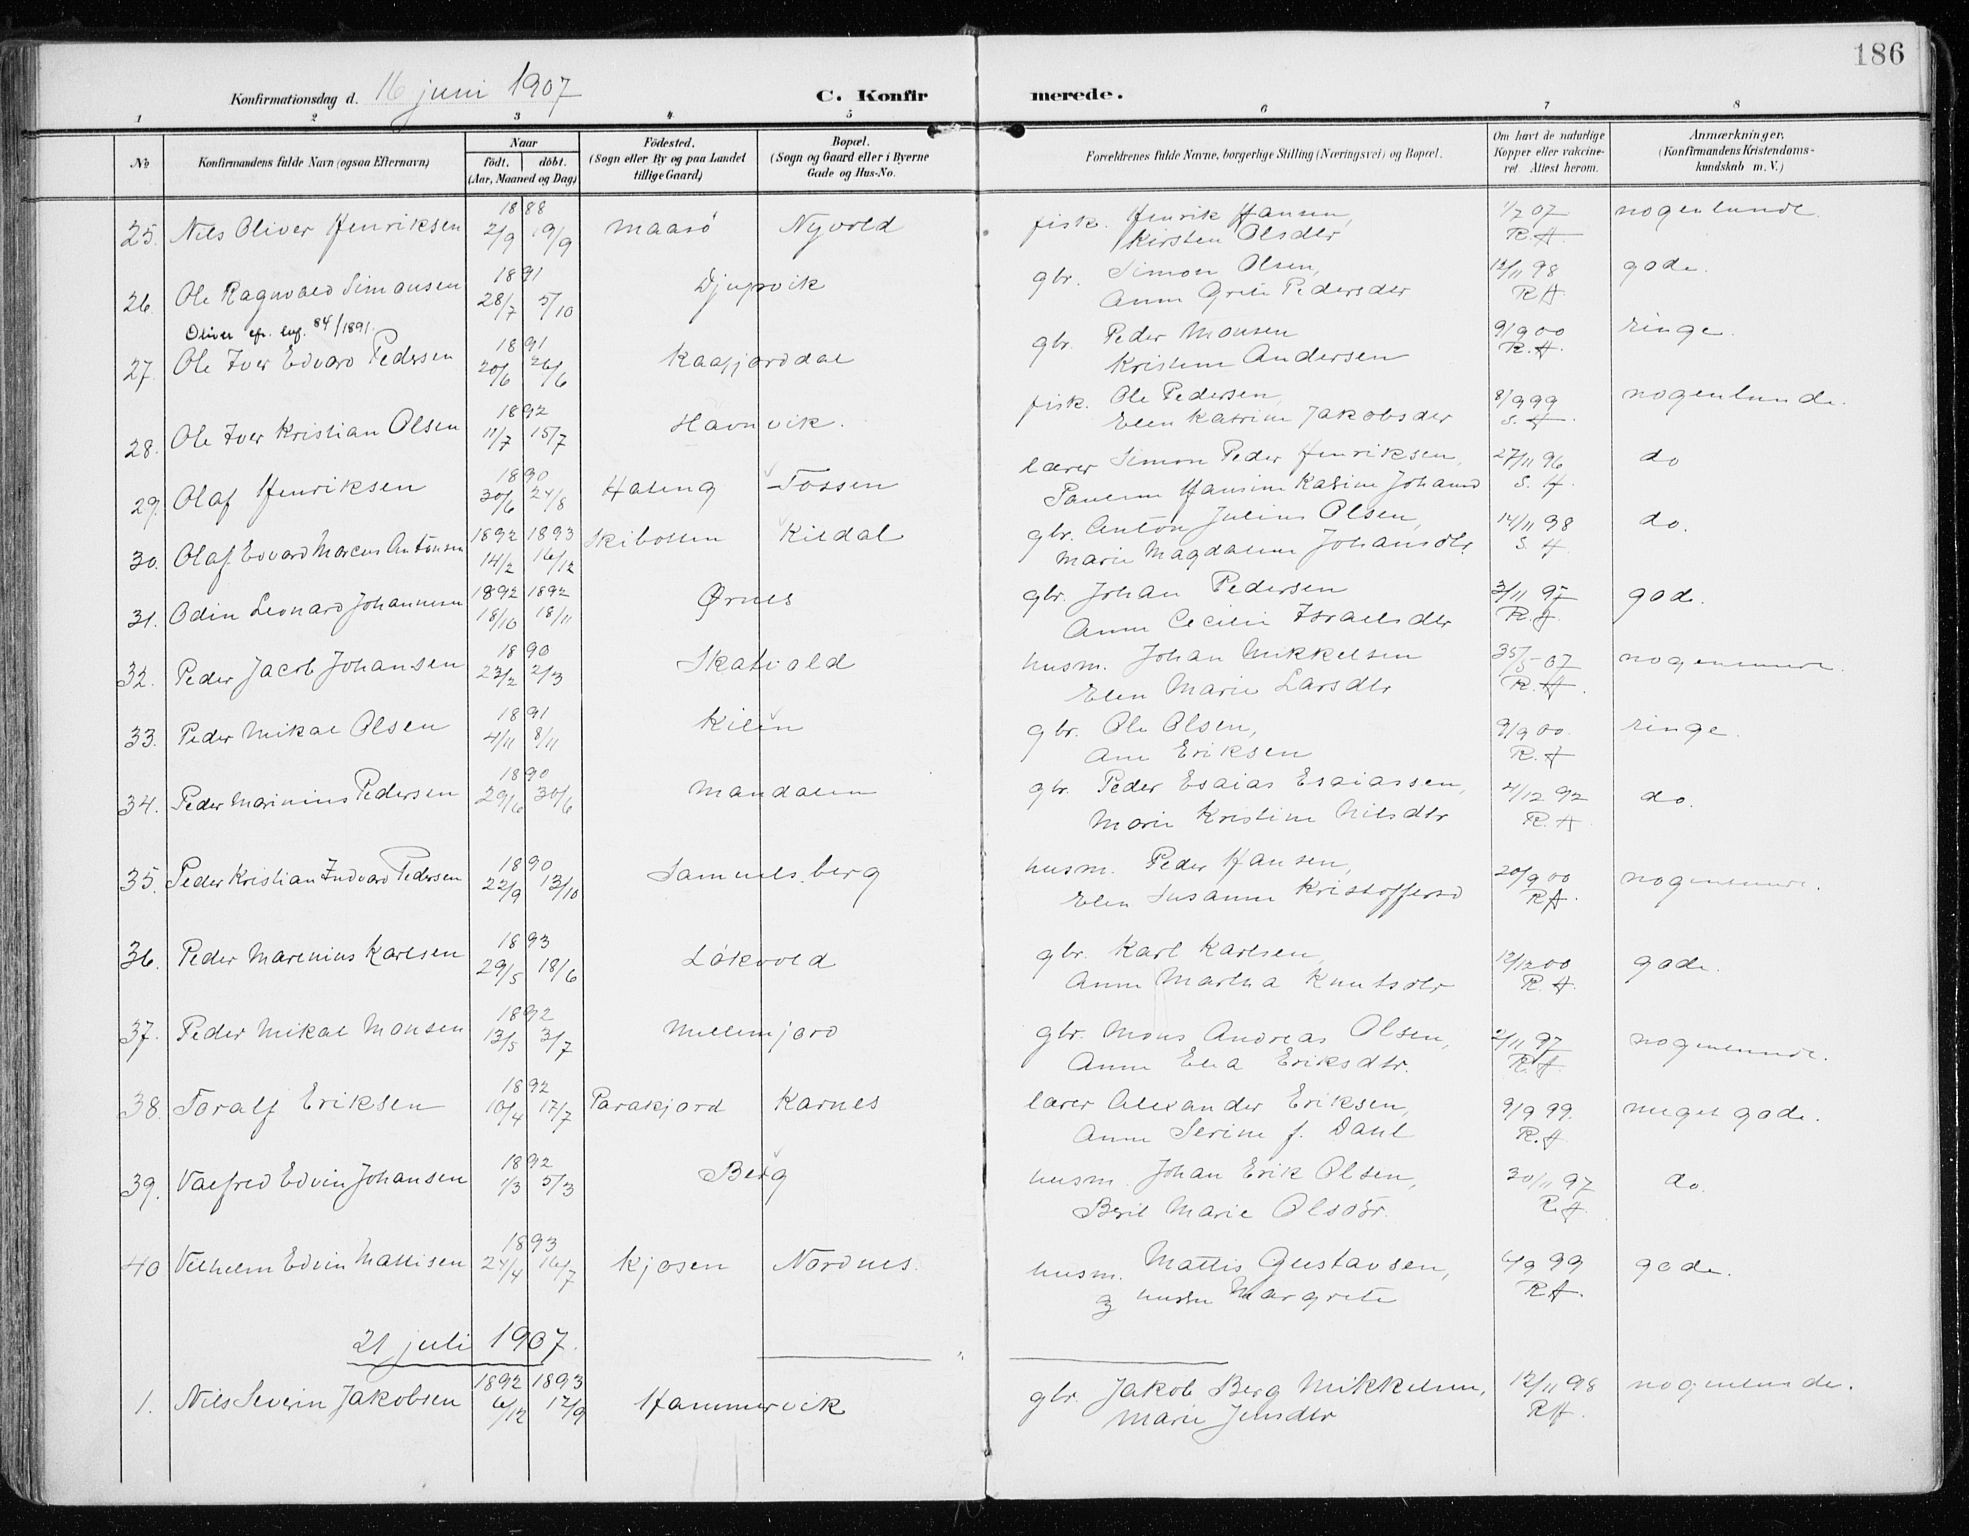 186
Konfirmationsdag d. 16 juni 1907 C. Konfirmerede.
1 2 3 4 5 6 7 8
No Konfirmandens fulde Navn (ogsaa Efternavn) Naar født. døbt. (Aar, Maaned og Dag) Fødested. (Sogn eller By og paa Landet tillige Gaard) Bopæl. (Sogn og Gaard eller i Byerne Gade og Hus-No. Forældrenes fulde Navne, borgerlige Stilling (Næringsvei) og Bopæl. Om havt de naturlige Kopper eller vaccineret. Attest herom. Anmærkninger. (Konfirmandens Kristendomskundskab m. V.)
25. Nils Oliver Henriksen 1888 2/9 19/9 Maasø Nyvold fisk. Henrik Hansen, 1/7 07 nogenlunde.
Kirsten Olsdtr R.A.
26. Ole Ragnvald Simonsen 1891 28/7 5/10 Djupvik gbr. Simon Olsen, 12/11 98 gode.
Oliver efr. lvf. 84/1891. Anne Grete Pedersdtr R.A
27. Ole Iver Edvard Pedersen 1891 20/6 26/6 Kaafjorddal gbr. Peder Monsen 9/9 00 ringe.
Kristine Andersen R.A.
28. Ole Iver Kristian Olsen 1892 11/7 15/7 Havnvik. fisk. Ole Pedersen, 8/9 99 nogenlunde.
Elen Katrine Jakobsdtr S.A.
29. Olaf Henriksen 1890 30/6 24/8 Haleng Tossen lærer Simon Peder Henriksen, 27/11 96 do
Hansine Katrine Johansd S. A.
30. Olaf Edvard Marcus Antonsen 1892 14/2 1893 16/12 Skibotten Kildal gbr. Anton Julius Olsen, 14/11 98 do.
Marie Magdalene Johansdtr S. A.
31. Odin Leonard Johannesen 1892 18/10 1892 18/11 Ørnes gbr. Johan Pedersen 3/11 97 gode.
Anne Cecilie Israelsdtr R.A.
32. Peder Jacob Johansen 1890 23/2 2/3 Skatvold husm. Johan Mikkelsen 07 nogenlunde.
Elen Marie Larsdtr R.A.
33. Peder Mikal Olsen 1891 4/11 8/11 Kilen gbr. Ole Olsen, 9/9 00. ringe.
Ane Eriksen R.A
34. Peder Marinius Pedersen 1890 29/6 30/6 Mandalen gbr. Peder Esaias Esaiassen, 4/12 92 do.
Marie Kristine Nilsdtr R.A
35. Peder Kristian Indvard Pedersen 1890 22/9 13/10 Samuelsberg husm. Peder Hansen, 20/9 00 nogenlunde.
Elen Susanne Kristoffersd RA.
36. Peder Marenius Karlsen 1893 29/5 18/6 Løkvold gbr. Karl Karlsen, 12/12 00 gode.
Anne Martha Knutsdtr R.A.
37. Peder Mikal Monsen 1892 13/5 3/7 Nillenfjord gbr. Mons Andreas Olsen, 2/11 97 nogenlunde.
Anne Elea Eriksdtr. R.A.
38. Toralf Eriksen 1892 10/4 17/7 Parakjord Karnes lærer Alexander Eriksen, 9/9 99. meget gode.
Anne Serine f. Dahl R.A.
39. Valfred Edvin Johansen 1892 1/3 5/3 Berg husm. Johan Erik Olsen, 30/11 97 do.
Berit Marie Olsdtr. R.A
40 Vilhelm Edvin Mattisen 1893 24/4 16/7 Kjosen Nordnes. husm. Mattis Gustavsen, 6/9 99 gode.
og hustru Margrete RA.
21 juli 1907.
1. Nils Severin Jakobsen 1892 6/12 1893 17/9 Hammervik gbr. Jakob Berg Mikkelsen, 12/11 98 nogenlunde.
Marie Jensdtr RA.